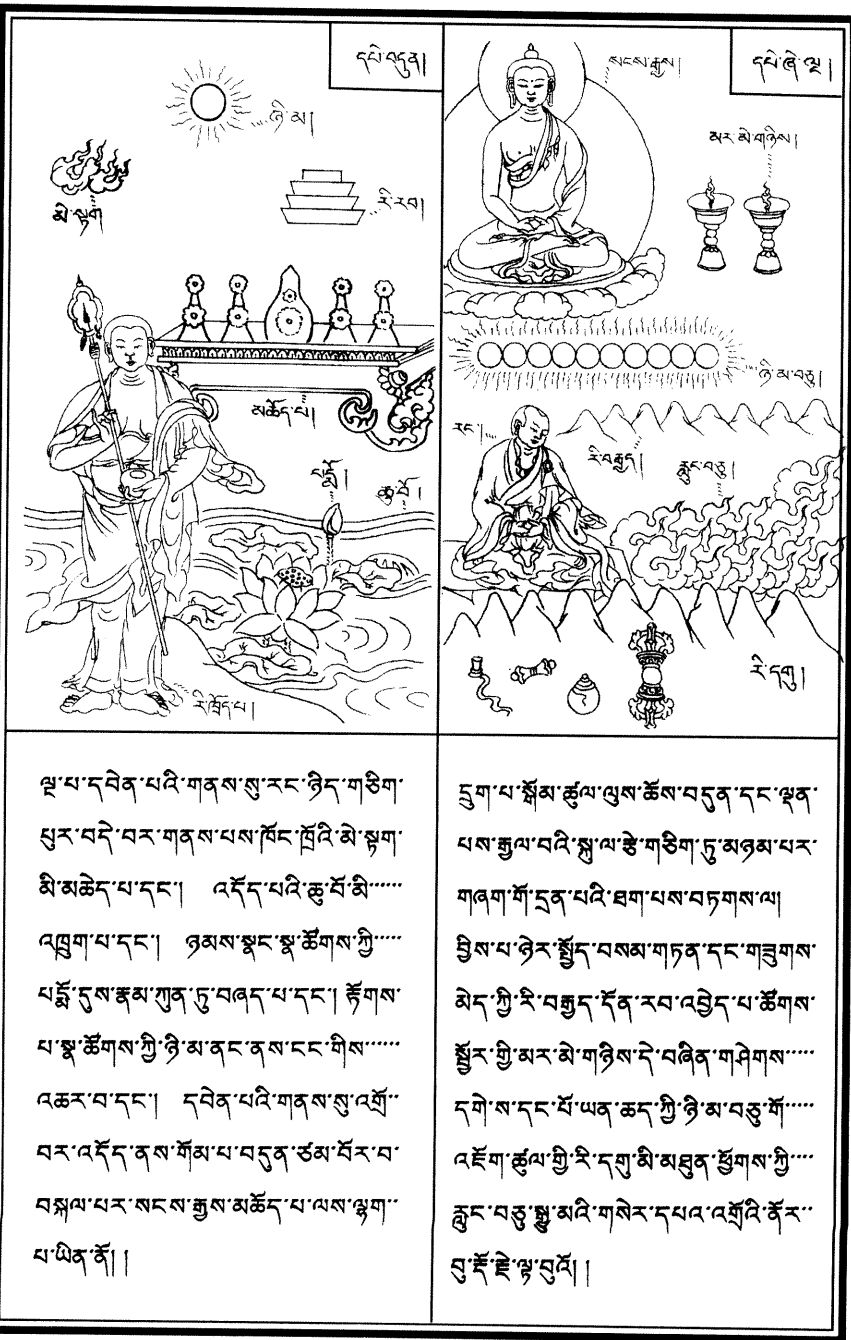 དཔེ་བདུན།
ཉི་མ།
མེ་སྟག
རི་རབ།
མཆོད་པ།
པདྨོ།
ཆུ་བོ།
རི་ཁྲོད་པ།
ལྔ་པ་དབེན་པའི་གནས་སུ་རང་ཉིད་གཅིག་
པུར་བདེ་བར་གནས་པས་ཁོང་ཁྲོའི་མེ་སྟག་
མི་མཆེད་པ་དང་། འདོད་པའི་ཆུ་བོ་མི་་་་་་
འཁྲུག་པ་དང་། ཉམས་སྣང་སྣ་ཚོགས་ཀྱི་་་་་
པདྨོ་དུས་རྣམ་ཀུན་ཏུ་བཞད་པ་དང་། རྟོགས་
པ་སྣ་ཚོགས་ཀྱི་ཉི་མ་ནང་ནས་ངང་གིས་་་་་་
འཆར་བ་དང་། དབེན་པའི་གནས་སུ་འགྲོ་་
བར་འདོད་ནས་གོམ་པ་བདུན་ཙམ་བོར་བ་
བསྐལ་པར་སངས་རྒྱས་མཆོད་པ་ལས་ལྷག་་
པ་ཡིན་ནོ།།
དཔེ་ཞེ་ལྔ།
སངས་རྒྱས།
མར་མེ་གཉིས།
ཉི་མ་བཅུ།
རང་།
རི་བརྒྱད།
རླུང་བཅུ།
རི་དགུ།
དྲུག་པ་སྒོམ་ཚུལ་ལུས་ཆོས་བདུན་དང་ལྡན་
པས་རྒྱལ་བའི་སྐུ་ལ་རྩེ་གཅིག་ཏུ་མཉམ་པར་
གཞག་གོ་དྲན་པའི་ཐག་པས་བཏགས་ལ།
བྱིས་པ་ཉེར་སྤྱོད་བསམ་གཏན་དང་གཟུགས་
མེད་ཀྱི་རི་བརྒྱད་དོན་རབ་འབྱེད་པ་ཚོགས་
སྦྱོར་གྱི་མར་མེ་གཉིས་དེ་བཞིན་གཤེགས་་་་་
དགེ་ས་དང་པོ་ཡན་ཆད་ཀྱི་ཉི་མ་བཅུ་གོ་་་་་
འཇོག་ཚུལ་གྱི་རི་དགུ་མི་མཐུན་ཕྱོགས་ཀྱི་་་་
རླུང་བཅུ་སྒྱུ་མའི་གསེར་དཔའ་འགྲོའི་ནོར་་
བུ་རྡོ་རྗེ་ལྟ་བུའོ།།